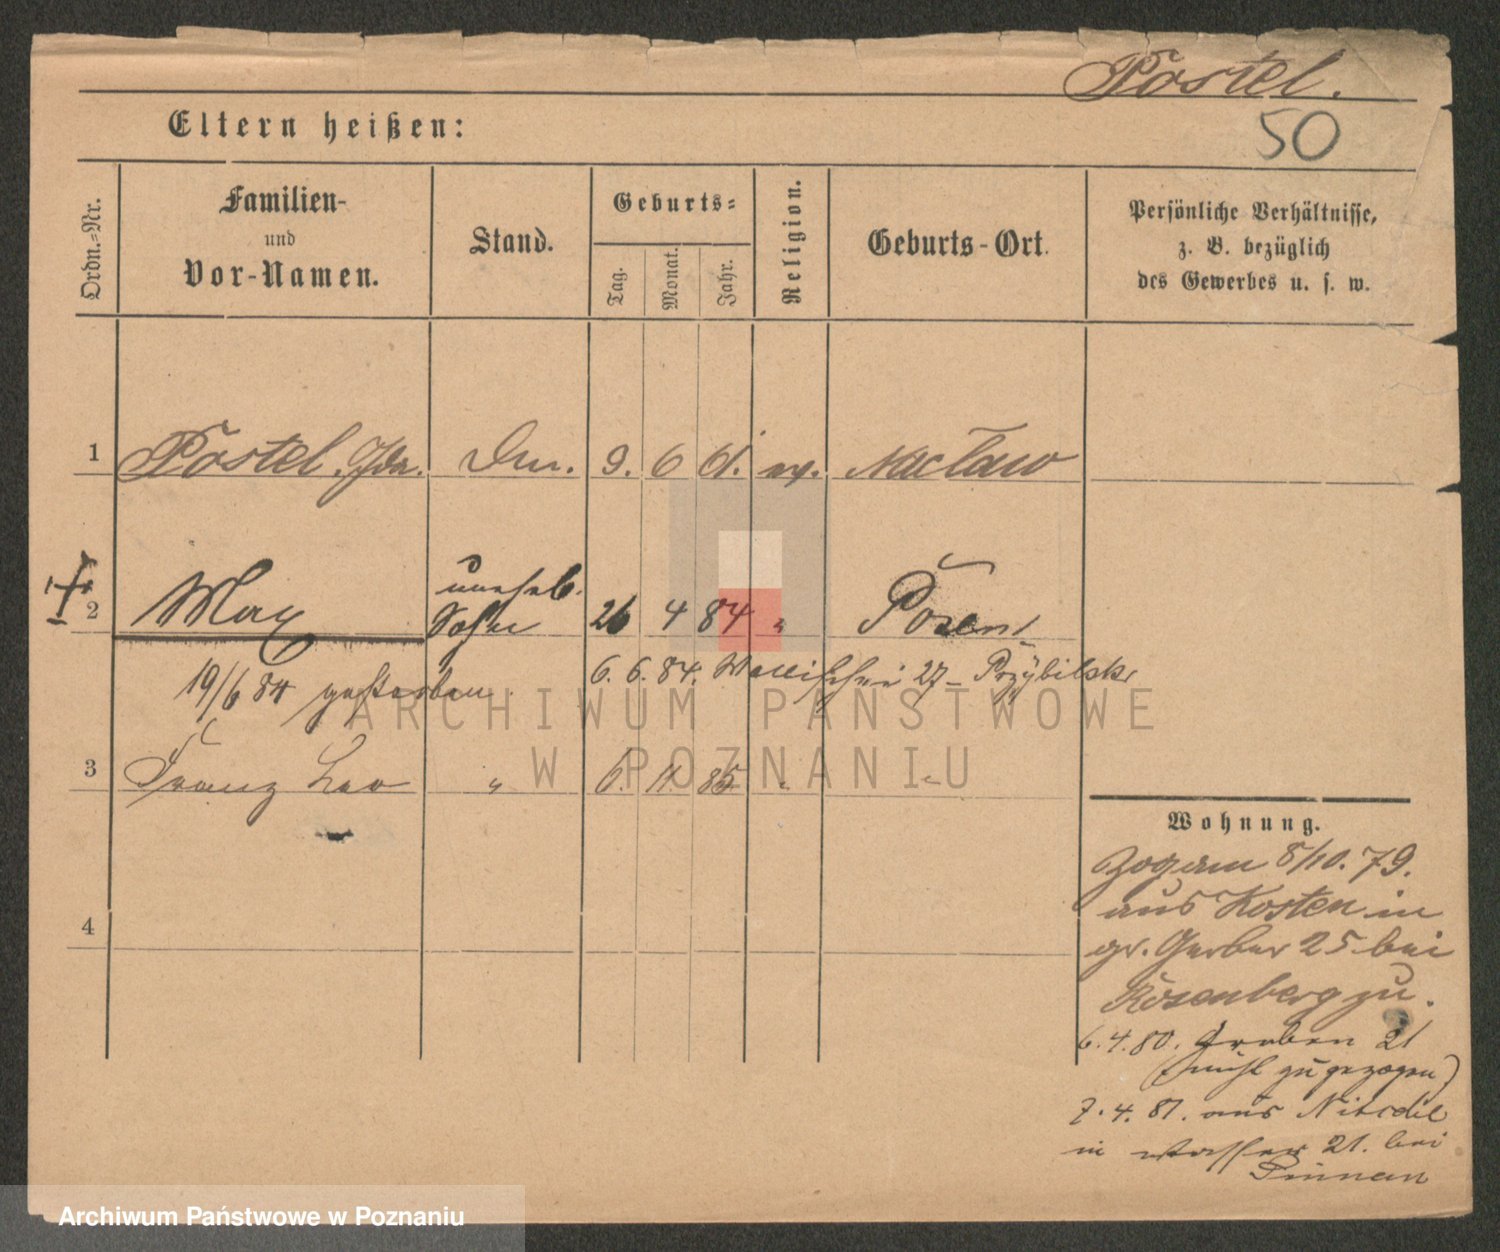 Postel.
50
Eltern heißen:
Ordn.-Nr.
Familien-
und
Vor-Namen.
Stand.
Geburts-
Tag.
Monat.
Jahr.
Religion.
Geburts-Ort.
Persönliche Verhältnisse,
z. B. bezüglich
des Gewerbes u. s. w.
1 Postel. Ida. 9. 6 61. ev. Naclaw
2 Max unehel. Sohn 26 4 84 " Posen
19/6 84 gestorben 6. 6. 84. Wallischei 27 - Przybilski
3 Franz Leo " 6. 11. 85 " "
4
Wohnung.
Zog am 8/10. 79.
aus Kosten in
gr. Gerber 25 bei
Rosenberg zu.
6. 4. 80. Graben 21
(nicht zugezogen)
7. 4. 81. aus
in Wasser 21. bei
ARCHIWUM PAŃSTWOWE
W POZNANIU
Archiwum Państwowe w Poznaniu